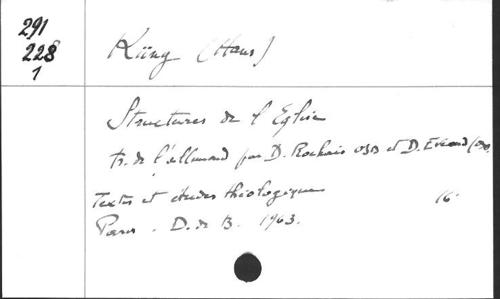 291
228
1
Küng (Hans)
Structures de l'Eglise
tr. de l'allemand par D. Rochais OSB et D. Evrard
Textes et études théologiques
16°
Paris. D. de B. 1963.